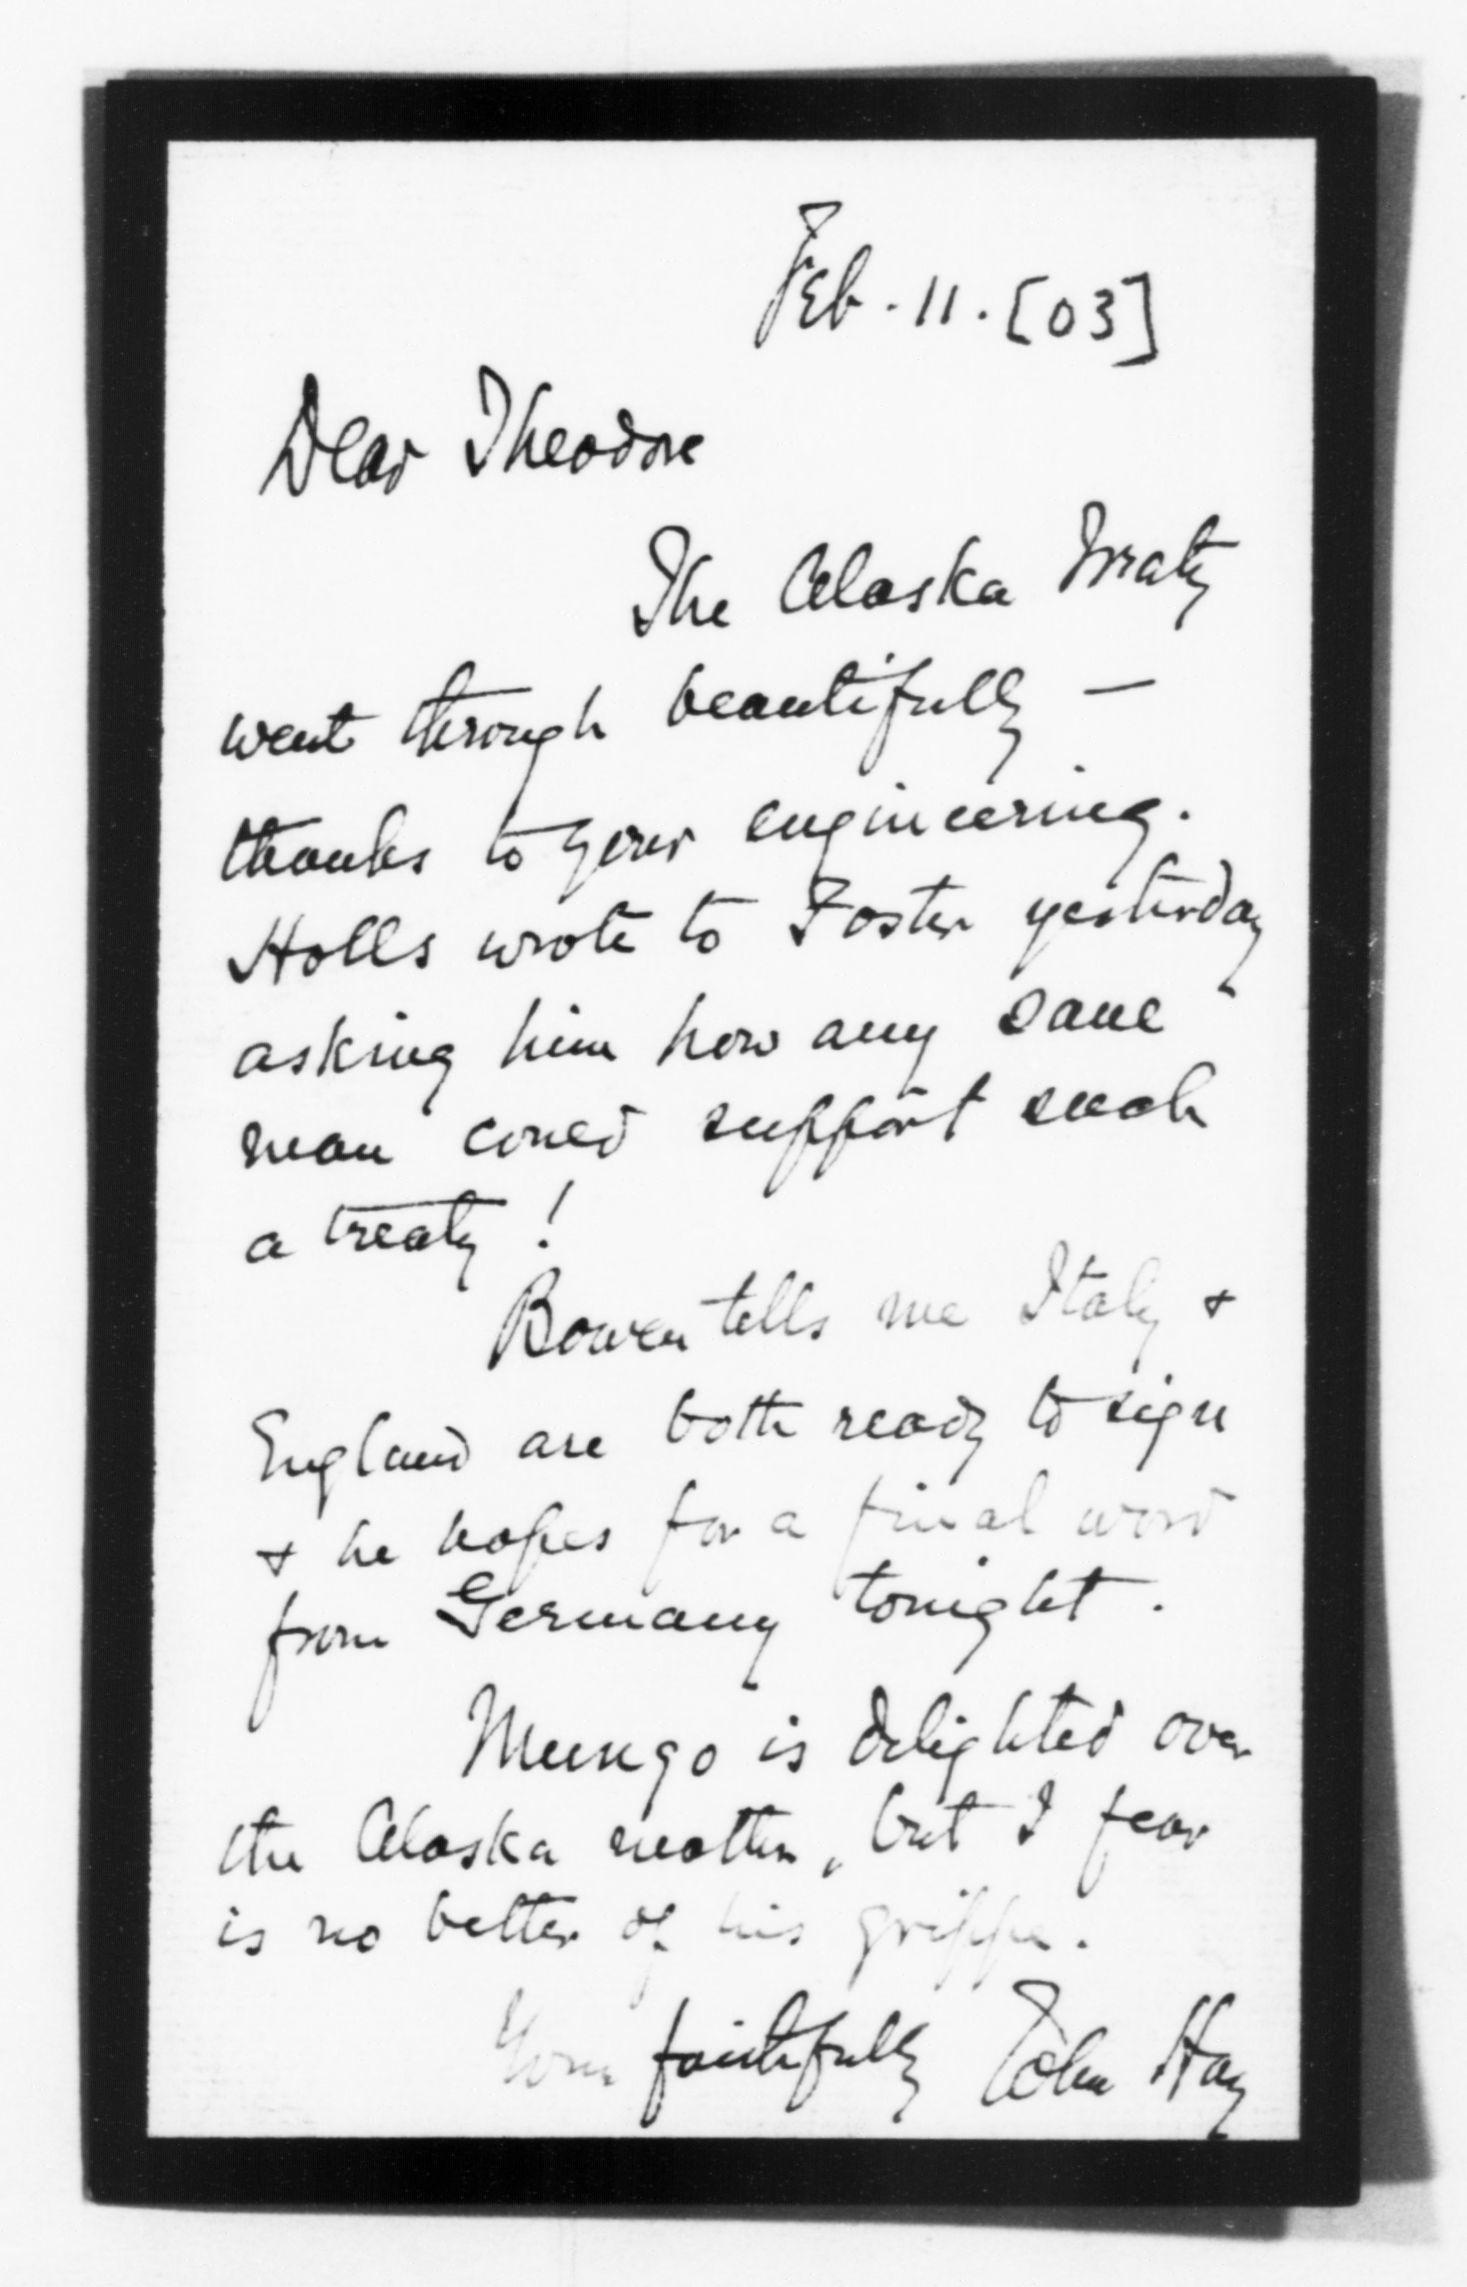 Feb. 11. [03]
Dear Theodore
The Alaska Treaty
went through beautifully —
thanks to your engineering.
Holls wrote to Foster yesterday
asking him how any sane
man could support such
a treaty!
Bowen tells me Italy +
England are both ready to sign
+ he hopes for a final word
from Germany tonight.
Mungo is delighted over
the Alaska matter, but I fear
is no better of his grippe.
Yours faithfully John Hay